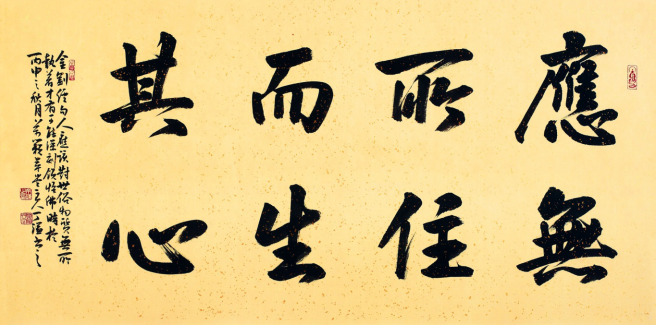 應無
所住
而生
其心
金剛經句人應該對世俗物質無所
執著才有可能深刻領悟佛時於
丙申之秋月